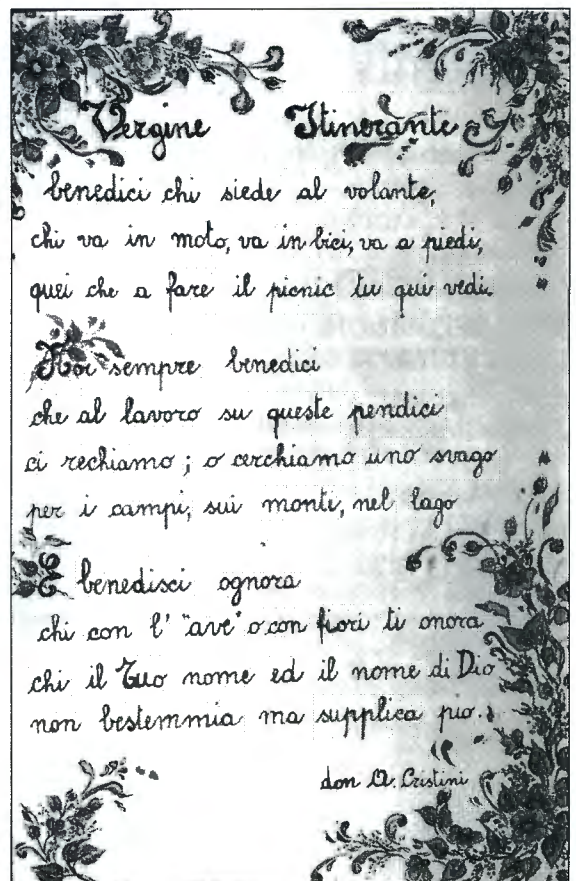 Vergine Itinerante
benedici chi siede al volante,
chi va in moto, va in bici, va a piedi,
quei che a fare il picnic tu qui vedi.
Noi sempre benedici
che al lavoro su queste pendici
ci rechiamo; o cerchiamo uno svago
per i campi, sui monti, nel lago
E benedisci ognora
chi con l' "ave" o con fiori ti onora
chi il Tuo nome ed il nome di Dio
non bestemmia ma supplica pio.
don A. Cristini